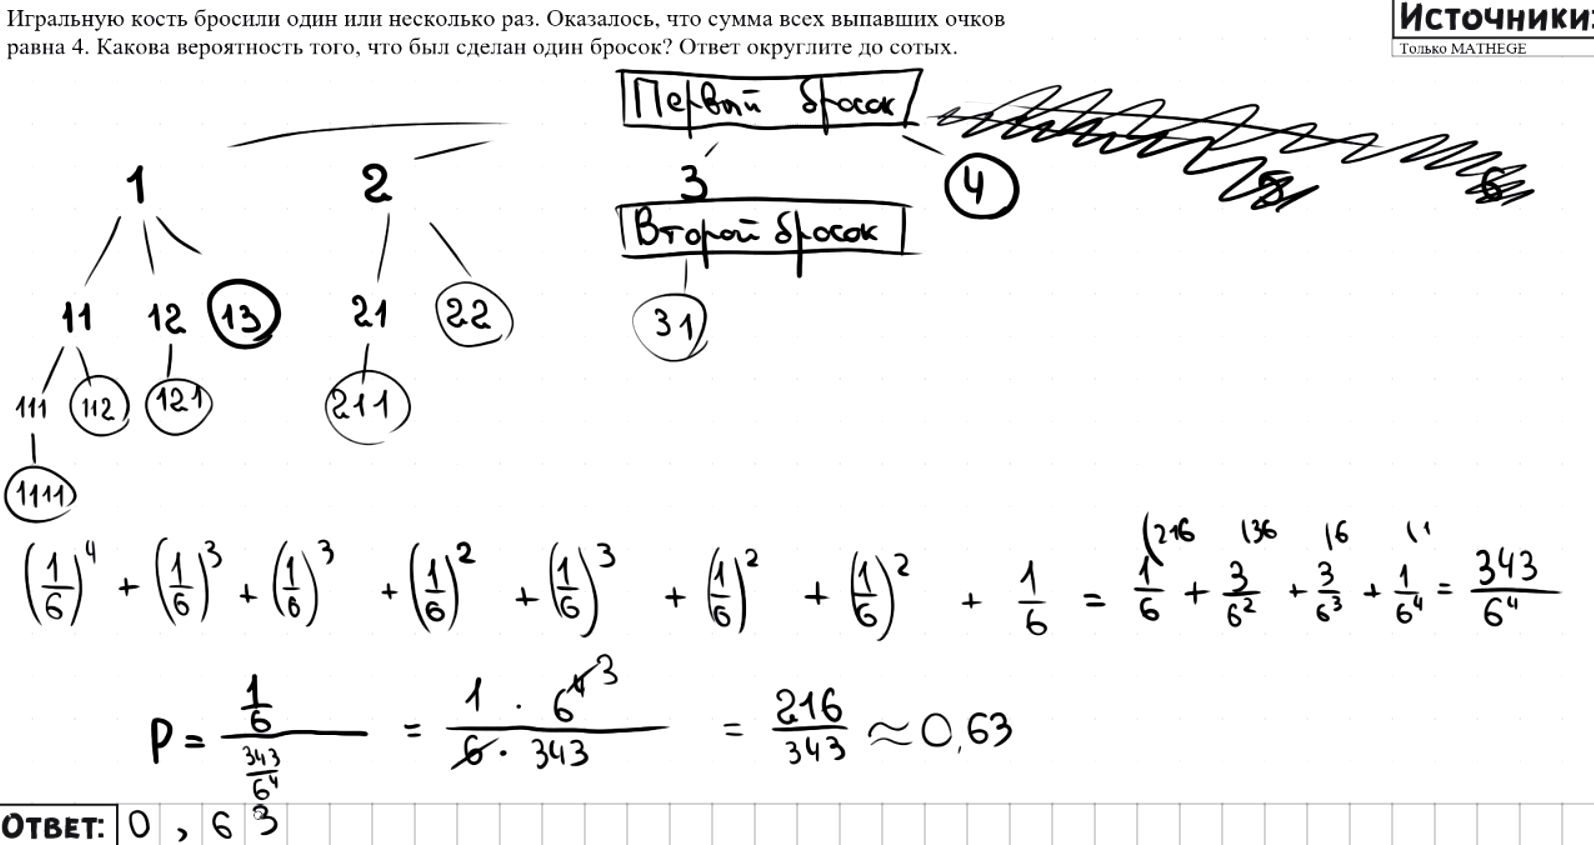 Игральную кость бросили один или несколько раз. Оказалось, что сумма всех выпавших очков
равна 4. Какова вероятность того, что был сделан один бросок? Ответ округлите до сотых.
Источники:
Только MATHEGE
Первый бросок
1 2 3 4 5 6
Второй бросок
11 12 13 21 22 31
111 112 121 211
1111
(1/6)^4 + (1/6)^3 + (1/6)^3 + (1/6)^2 + (1/6)^3 + (1/6)^2 + (1/6)^2 + 1/6 = 1/6 (216 + 3/6^2 (36 + 3/6^3 (6 + 1/6^4 (1 = 343/6^4
P = (1/6)/(343/6^4) = (1 · 6^4 3)/(6 · 343) = 216/343 ≈ 0,63
ОТВЕТ: 0,63